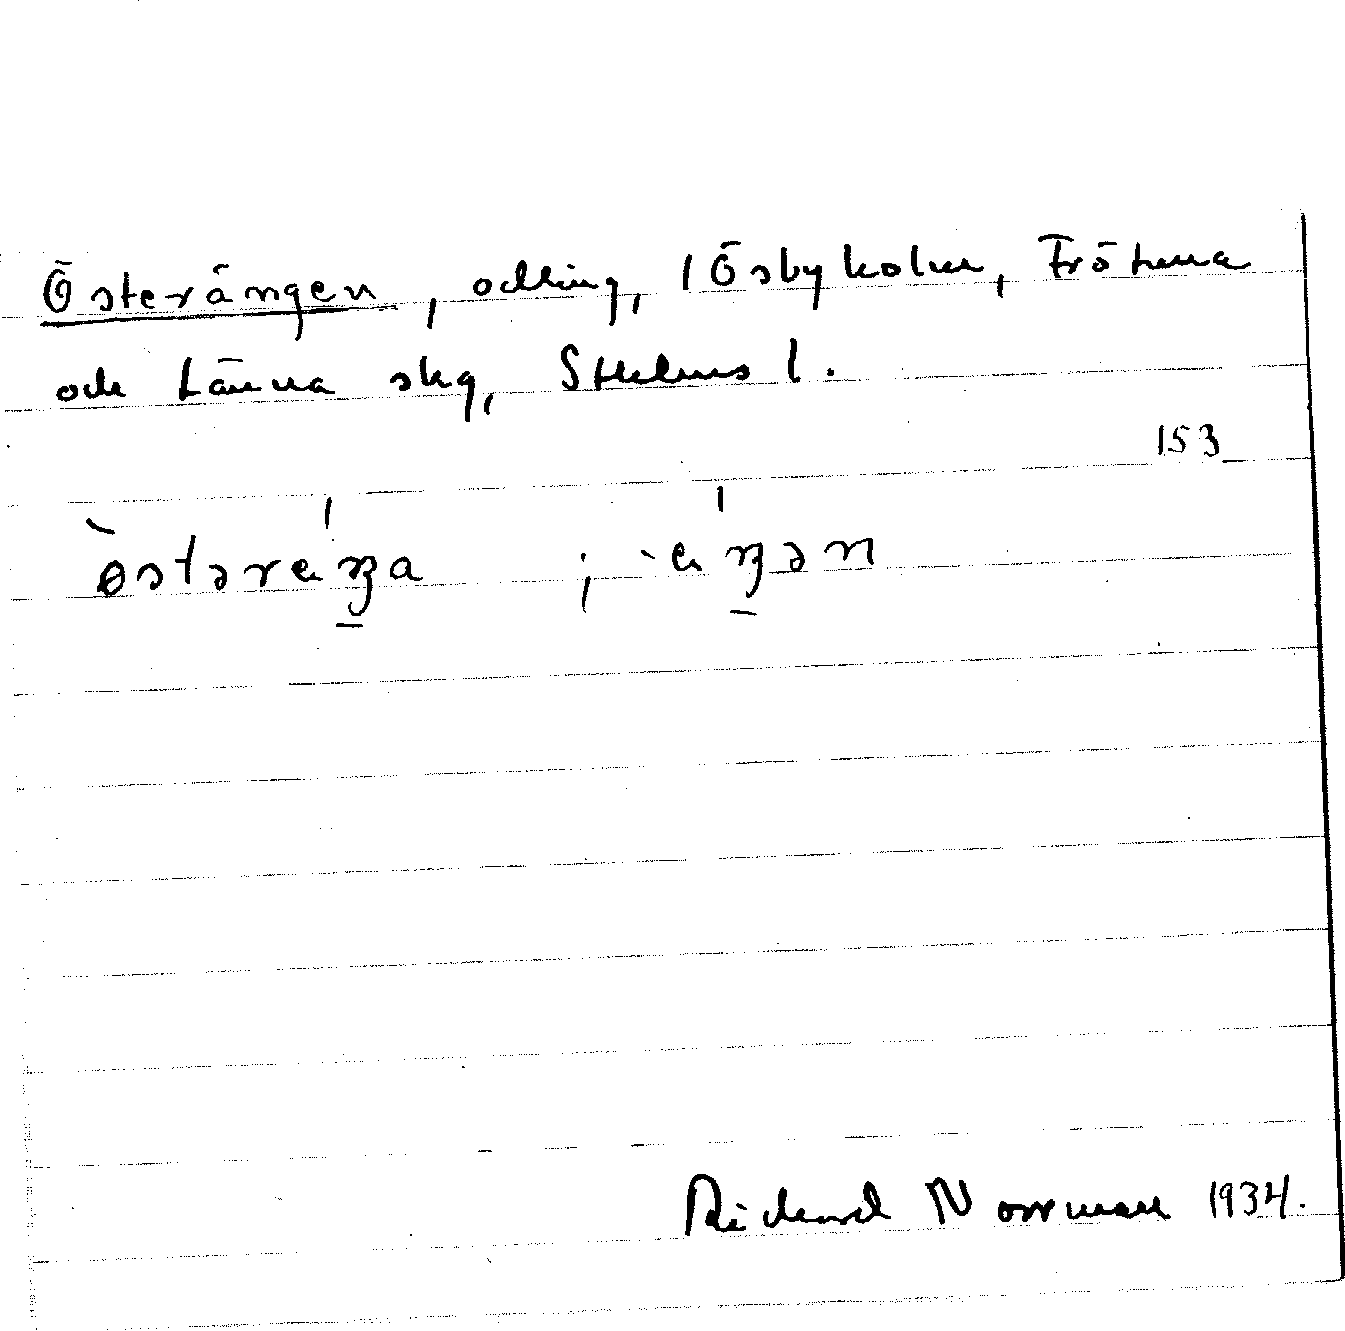 Österängen, odling, 1 Ösbyholm, Frötuna
och Länna skg, Sthlms l.
153
̀østəræŋa ; -æŋən
Richard Norrman 1934.